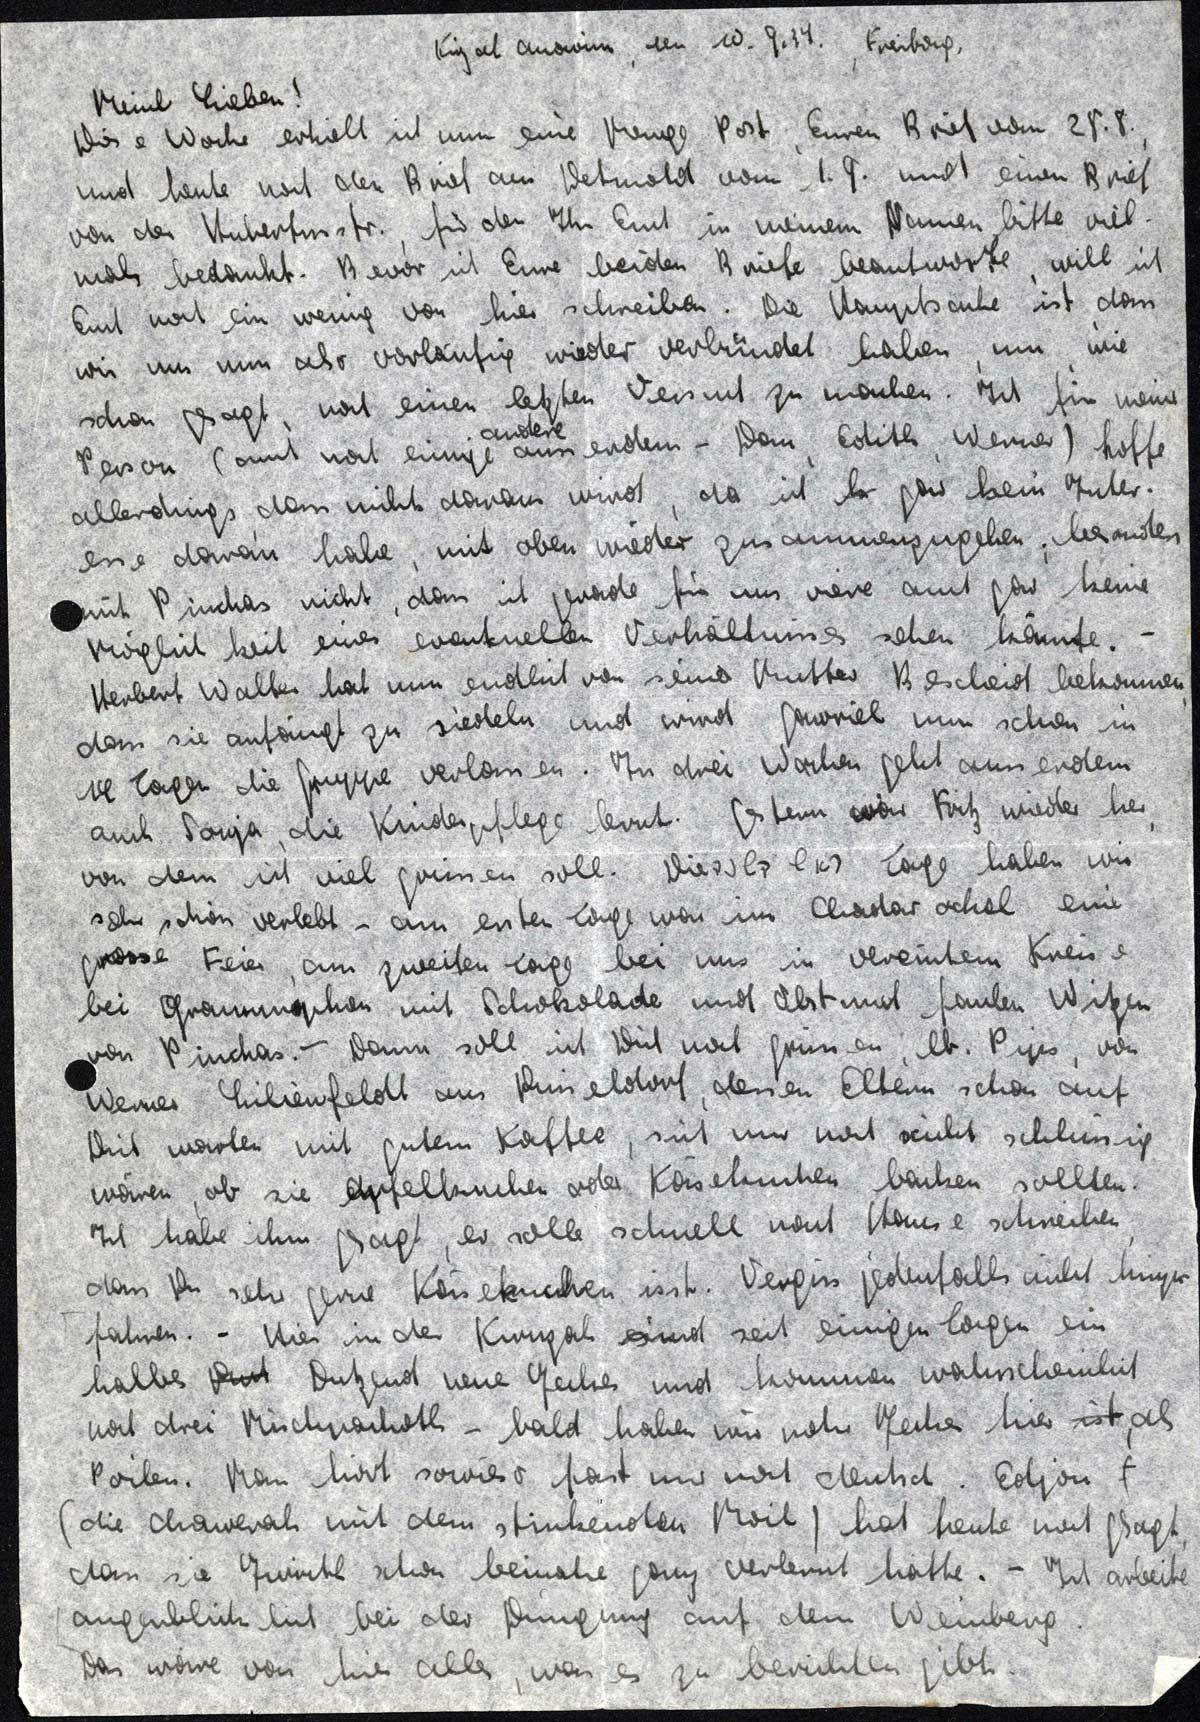 Kirjat Anawim, den 10.9.34., Freiburg.
Meine Lieben!
Diese Woche erhielt ich nun eine Menge Post, Euren Brief vom 28.8.,
und heute noch den Brief aus Detmold vom 1.9. und einen Brief
von der Hubertusstr., für den Ihr Euch in meinem Namen bitte viel-
mals bedankt. Bevor ich Eure beiden Briefe beantworte, will ich
Euch noch ein wenig von hier schreiben. Die Hauptsache ist dass
wir uns nun also vorläufig wieder verbündet haben, um wie
schon gesagt, noch einen letzten Versuch zu machen. Ich für meine
Person (auch noch einige andere ausserdem - Dan, Edith, Werner) hoffe
allerdings, dass nichts daraus wird, da ich gar kein Inter-
esse daran habe, mit oben wieder zusammenzugehen, besonders
mit Pinchas nicht, dass ich gerade für uns auch gar keine
Möglichkeit eines eventuellen Verhältnisses sehen könnte. -
Herbert Walter hat nun endlich von seiner Mutter Bescheid bekommen,
dass sie anfängt zu siedeln und wird Gawriel nun schon in
14 Tagen die Gruppe verlassen. In drei Wochen geht ausserdem
auch Sonja, die Kinderpflege lernt. Gestern war Fritz wieder hier,
von dem ich viel grüssen soll. Die Tage haben wir
sehr schön verlebt - am ersten Tage war im Chadar ochel eine
grosse Feier, am zweiten Tage bei uns in vereintem Kreise
bei Grammophon mit Schokolade und Obst und faulen Witzen
von Pinchas. - Dann soll ich Dich noch grüssen, lb. Pips, von
Werner Lilienfeldt aus Düsseldorf, dessen Eltern schon auf
Dich warten mit gutem Kaffee, sich nur noch nicht schlüssig
wären, ob sie Apfelkuchen oder Käsekuchen backen sollten.
Ich habe ihm gesagt, er solle schnell nach Hause schreiben,
dass Du sehr gerne Käsekuchen isst. Vergiss jedenfalls nicht hinzu-
fahren. - Hier in der Kwuzah sind seit einigen Tagen ein
halbes Dutzend neue Jeckes und kommen wahrscheinlich
noch drei Mischpachoth - bald haben wir mehr Jeckes hier als
Poilen. Man hört sowieso fast nur noch deutsch. Edjou F
(die Chawerah mit dem stinkenden Moil) hat heute noch gesagt,
dass sie Iwrith schon beinahe ganz verlernt hätte. - Ich arbeite
augenblicklich bei der Düngung auf dem Weinberg.
Das wäre von hier alles, was es zu berichten gibt.